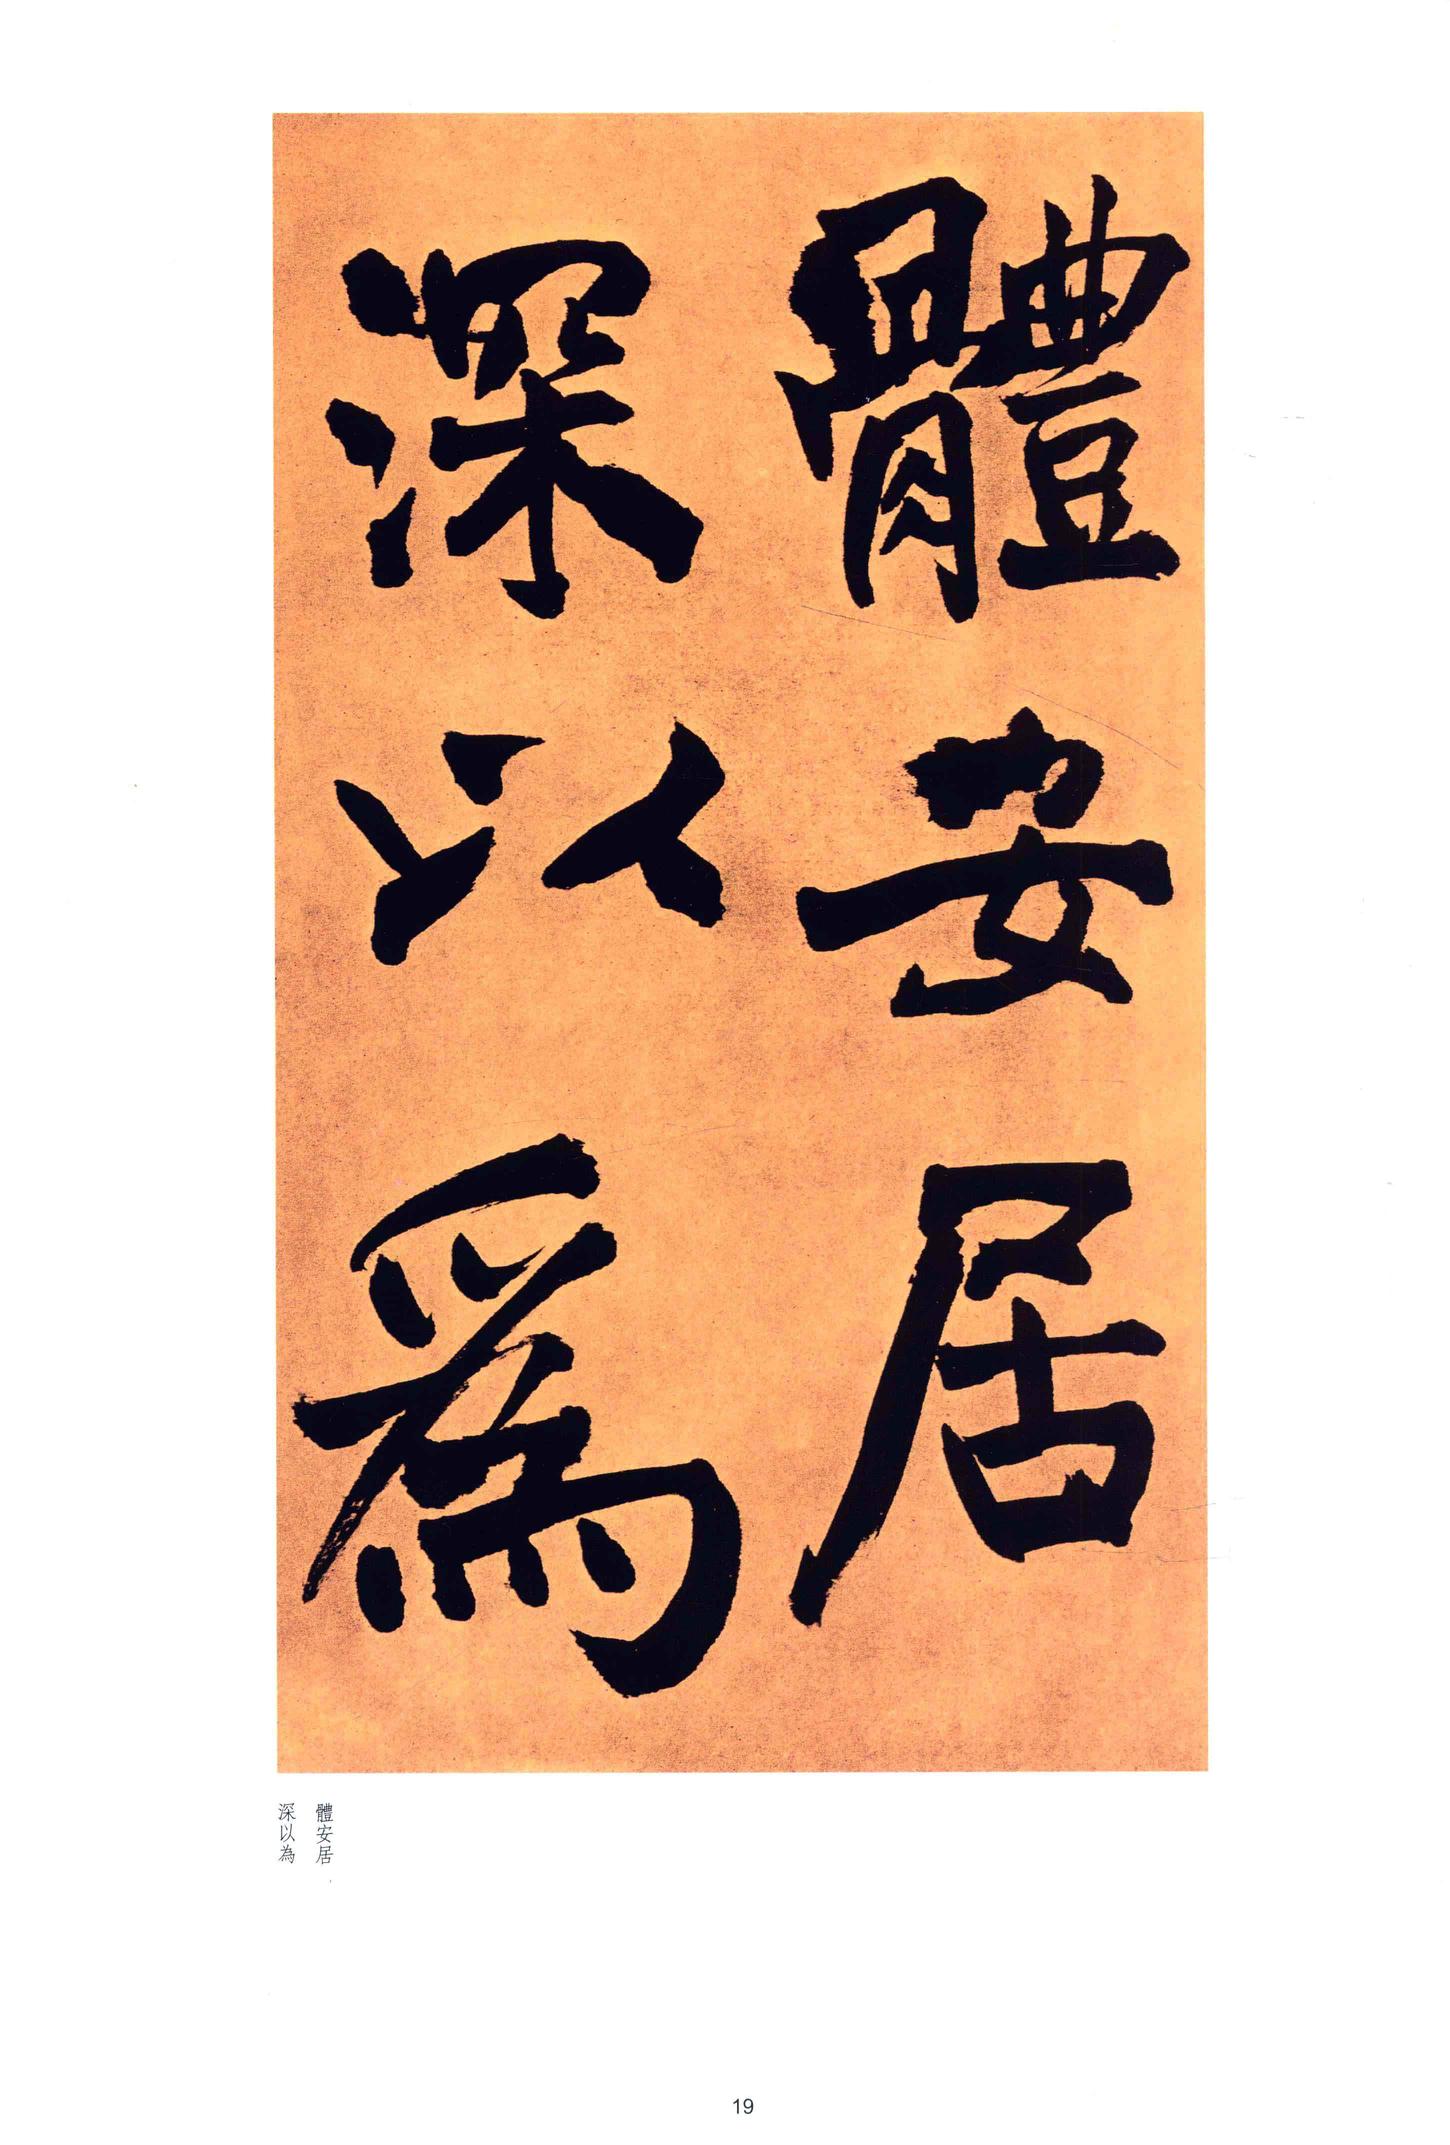 體安居
深以爲
體安居
深以為
19